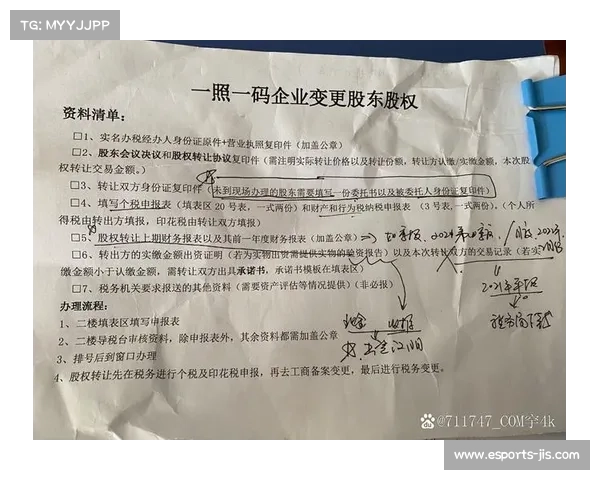 TG: MYYJJPP
一照一码企业变更股东股权
资料清单：
□1、实名办税经办人身份证原件+营业执照复印件（加盖公章）
□2、股东会议决议和股权转让协议复印件（需注明实际转让价格以及转让份额，转让方认缴/实缴金额，本次股
权转让交易金额。）
□3、转让双方身份证复印件（未到现场办理的股东需要填写一份委托书以及被委托人身份证复印件）
□4、填写个税申报表（填表区 20 号表，一式两份）和财产和行为税纳税申报表 （3 号表，一式两份）。（个人所
得税由转出方填报，印花税由转让双方填报）
□5、股权转让上期财务报表以及其前一年度财务报表（加盖公章）
□6、转出方的实缴金额出资证明（若为实物出资需提供实物的验资报告）以及本次转让双方的交易记录（若实
缴金额小于认缴金额，需转让双方出具承诺书，承诺书模板在填表区）
2021年年报
□7、税务机关要求报送的其他资料（需要资产评估等情况提供）（非必报）
办理流程：
1、二楼填表区填写申报表
2、二楼导税台审核资料，除申报表外，其余资料都需加盖公章
3、排号后到窗口办理
4、股权转让先在税务进行个税及印花税申报，再去工商备案变更，最后进行税务变更。
@711747_COM宇4k
www.esports-jis.com